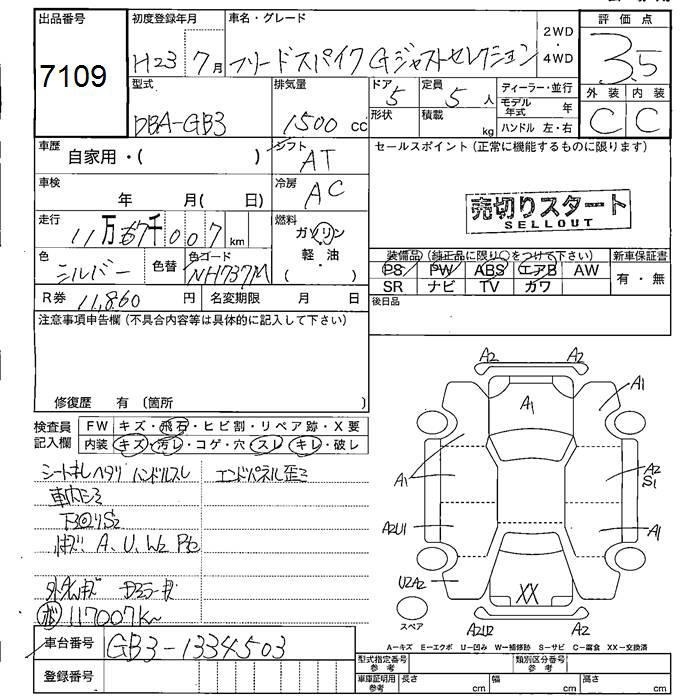 出品番号
7109
初度登録年月
H23 7月
車名・グレード
フリードスパイク Gジャストセレクション
2WD
・
4WD
評価点
3.5
外装 内装
C C
型式
DBA-GB3
排気量
1500 cc
ドア
5
形状
定員
5 人
積載
kg
ディーラー・並行
モデル年式 年
ハンドル 左・右
車歴
自家用・( )
シフト
AT
セールスポイント(正常に機能するものに限ります)
車検
年 月( 日)
冷房
AC
売切りスタート
SELLOUT
走行
11万7千007 km
燃料
ガソリン
軽・油
( )
色
シルバー
色替
色コード
NH737M
装備品(純正品に限り○をつけて下さい)
PS PW ABS エアB AW
SR ナビ TV カワ
新車保証書
有・無
R券 11,860 円
名変期限 月 日
後日品
注意事項申告欄(不具合内容等は具体的に記入して下さい)
修復歴 有(箇所 )
検査員記入欄
FW キズ・飛石・ヒビ割・リペア跡・X要
内装 キズ・汚レ・コゲ・穴・スレ・キレ・破レ
シートキレ ヘタリ ハンドルスレ
エンドパネル歪ミ
車内シミ
下回りS2
A、U、W2
117007km
車台番号
GB3-1334503
登録番号
A2 A2
A1
A1
A1
A2
S1
A2U1
A1
U2A2
XX
スペア
A2U2
A2
A-キズ E-エクボ U-凹み W-補修跡 S-サビ C-腐食 XX-交換済
型式指定番号
参考
類別区分番号
参考
車庫証明用
参考
長さ cm
幅 cm
高さ cm